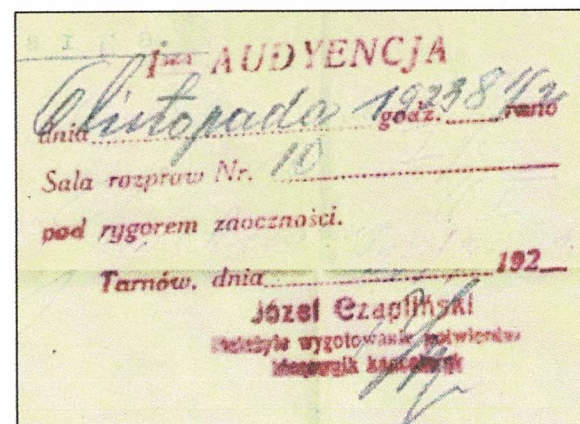 Ima AUDYENCJA
dnia 6 listopada 1923 godz. 8 1/2 rano
Sala rozpraw Nr. 10
pod rygorem zaoczności.
Tarnów, dnia 192
Józef Czapliński
Należyte wygotowanie potwierdza
kierownik kancelarji